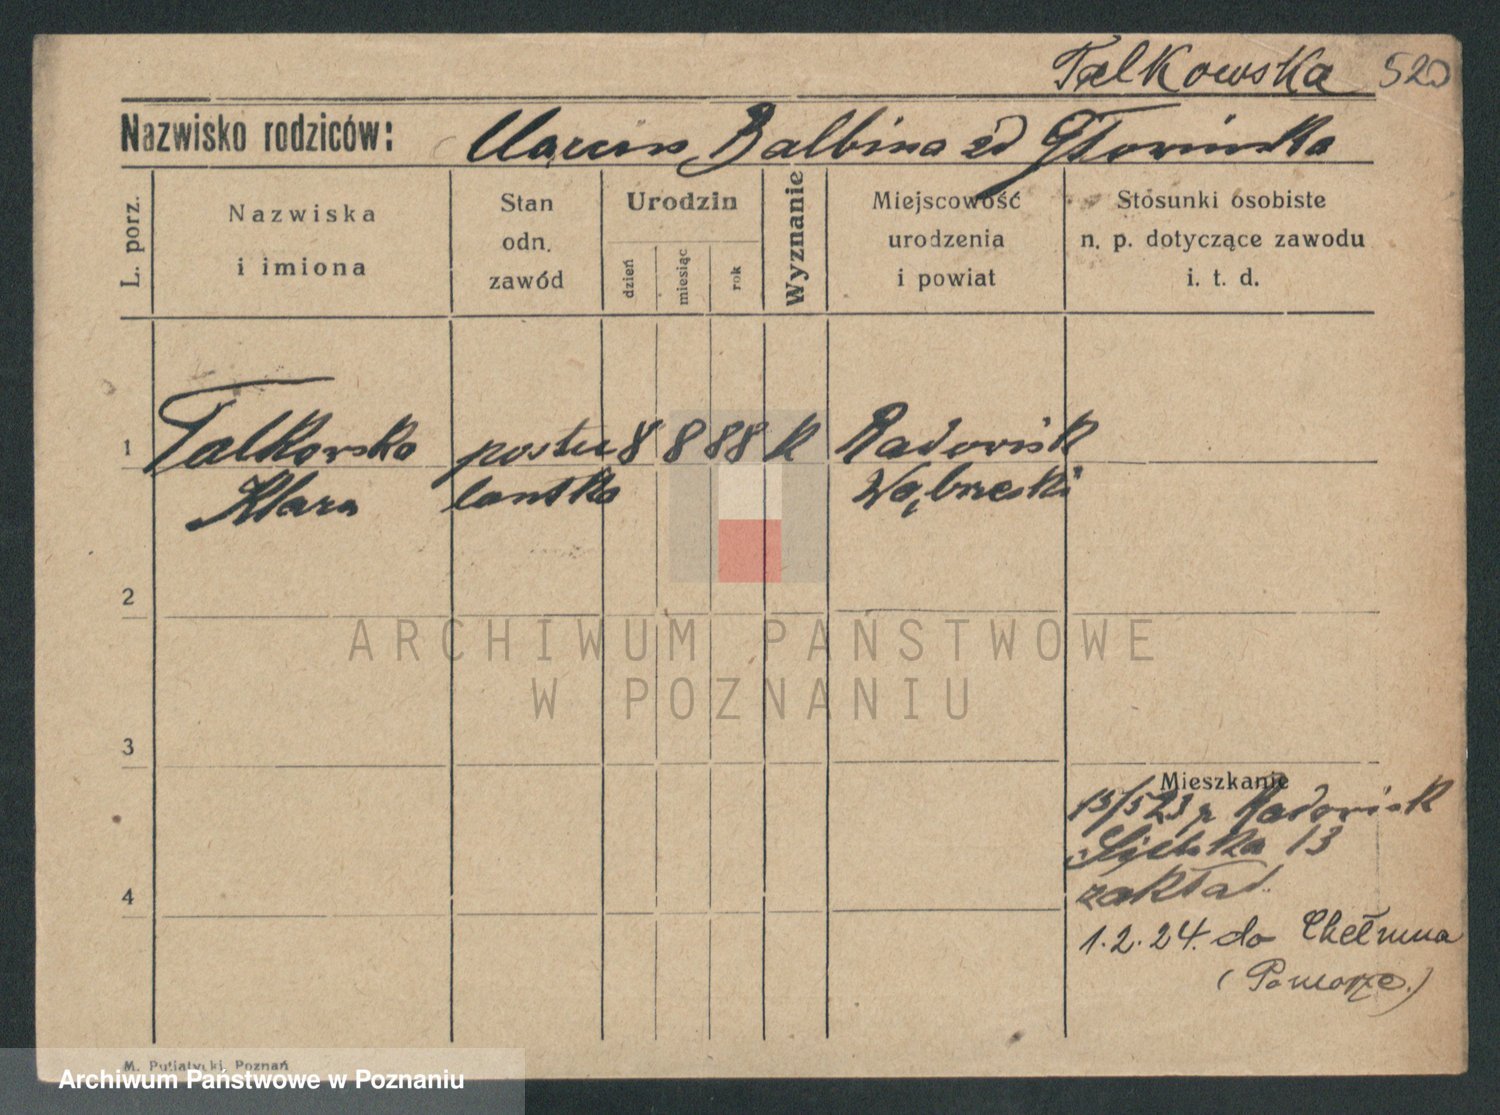 Talkowska 520
Nazwisko rodziców: Marcin, Balbina zd Głowińska
L. porz.
Nazwiska
i imiona
Stan
odn.
zawód
Urodzin
dzień
miesiąc
rok
Wyznanie
Miejscowość
urodzenia
i powiat
Stosunki osobiste
n. p. dotyczące zawodu
i. t. d.
1 Talkowska postu 8 8 88 k Radowisk
Klara lantka Wąbrzeski
2
ARCHIWUM PAŃSTWOWE
W POZNANIU
3
Mieszkanie
15/5 23 z Radowisk
13
zakład
4
1.2.24. do Chełmna
(Pomorze.)
M. Putiatycki, Poznań
Archiwum Państwowe w Poznaniu